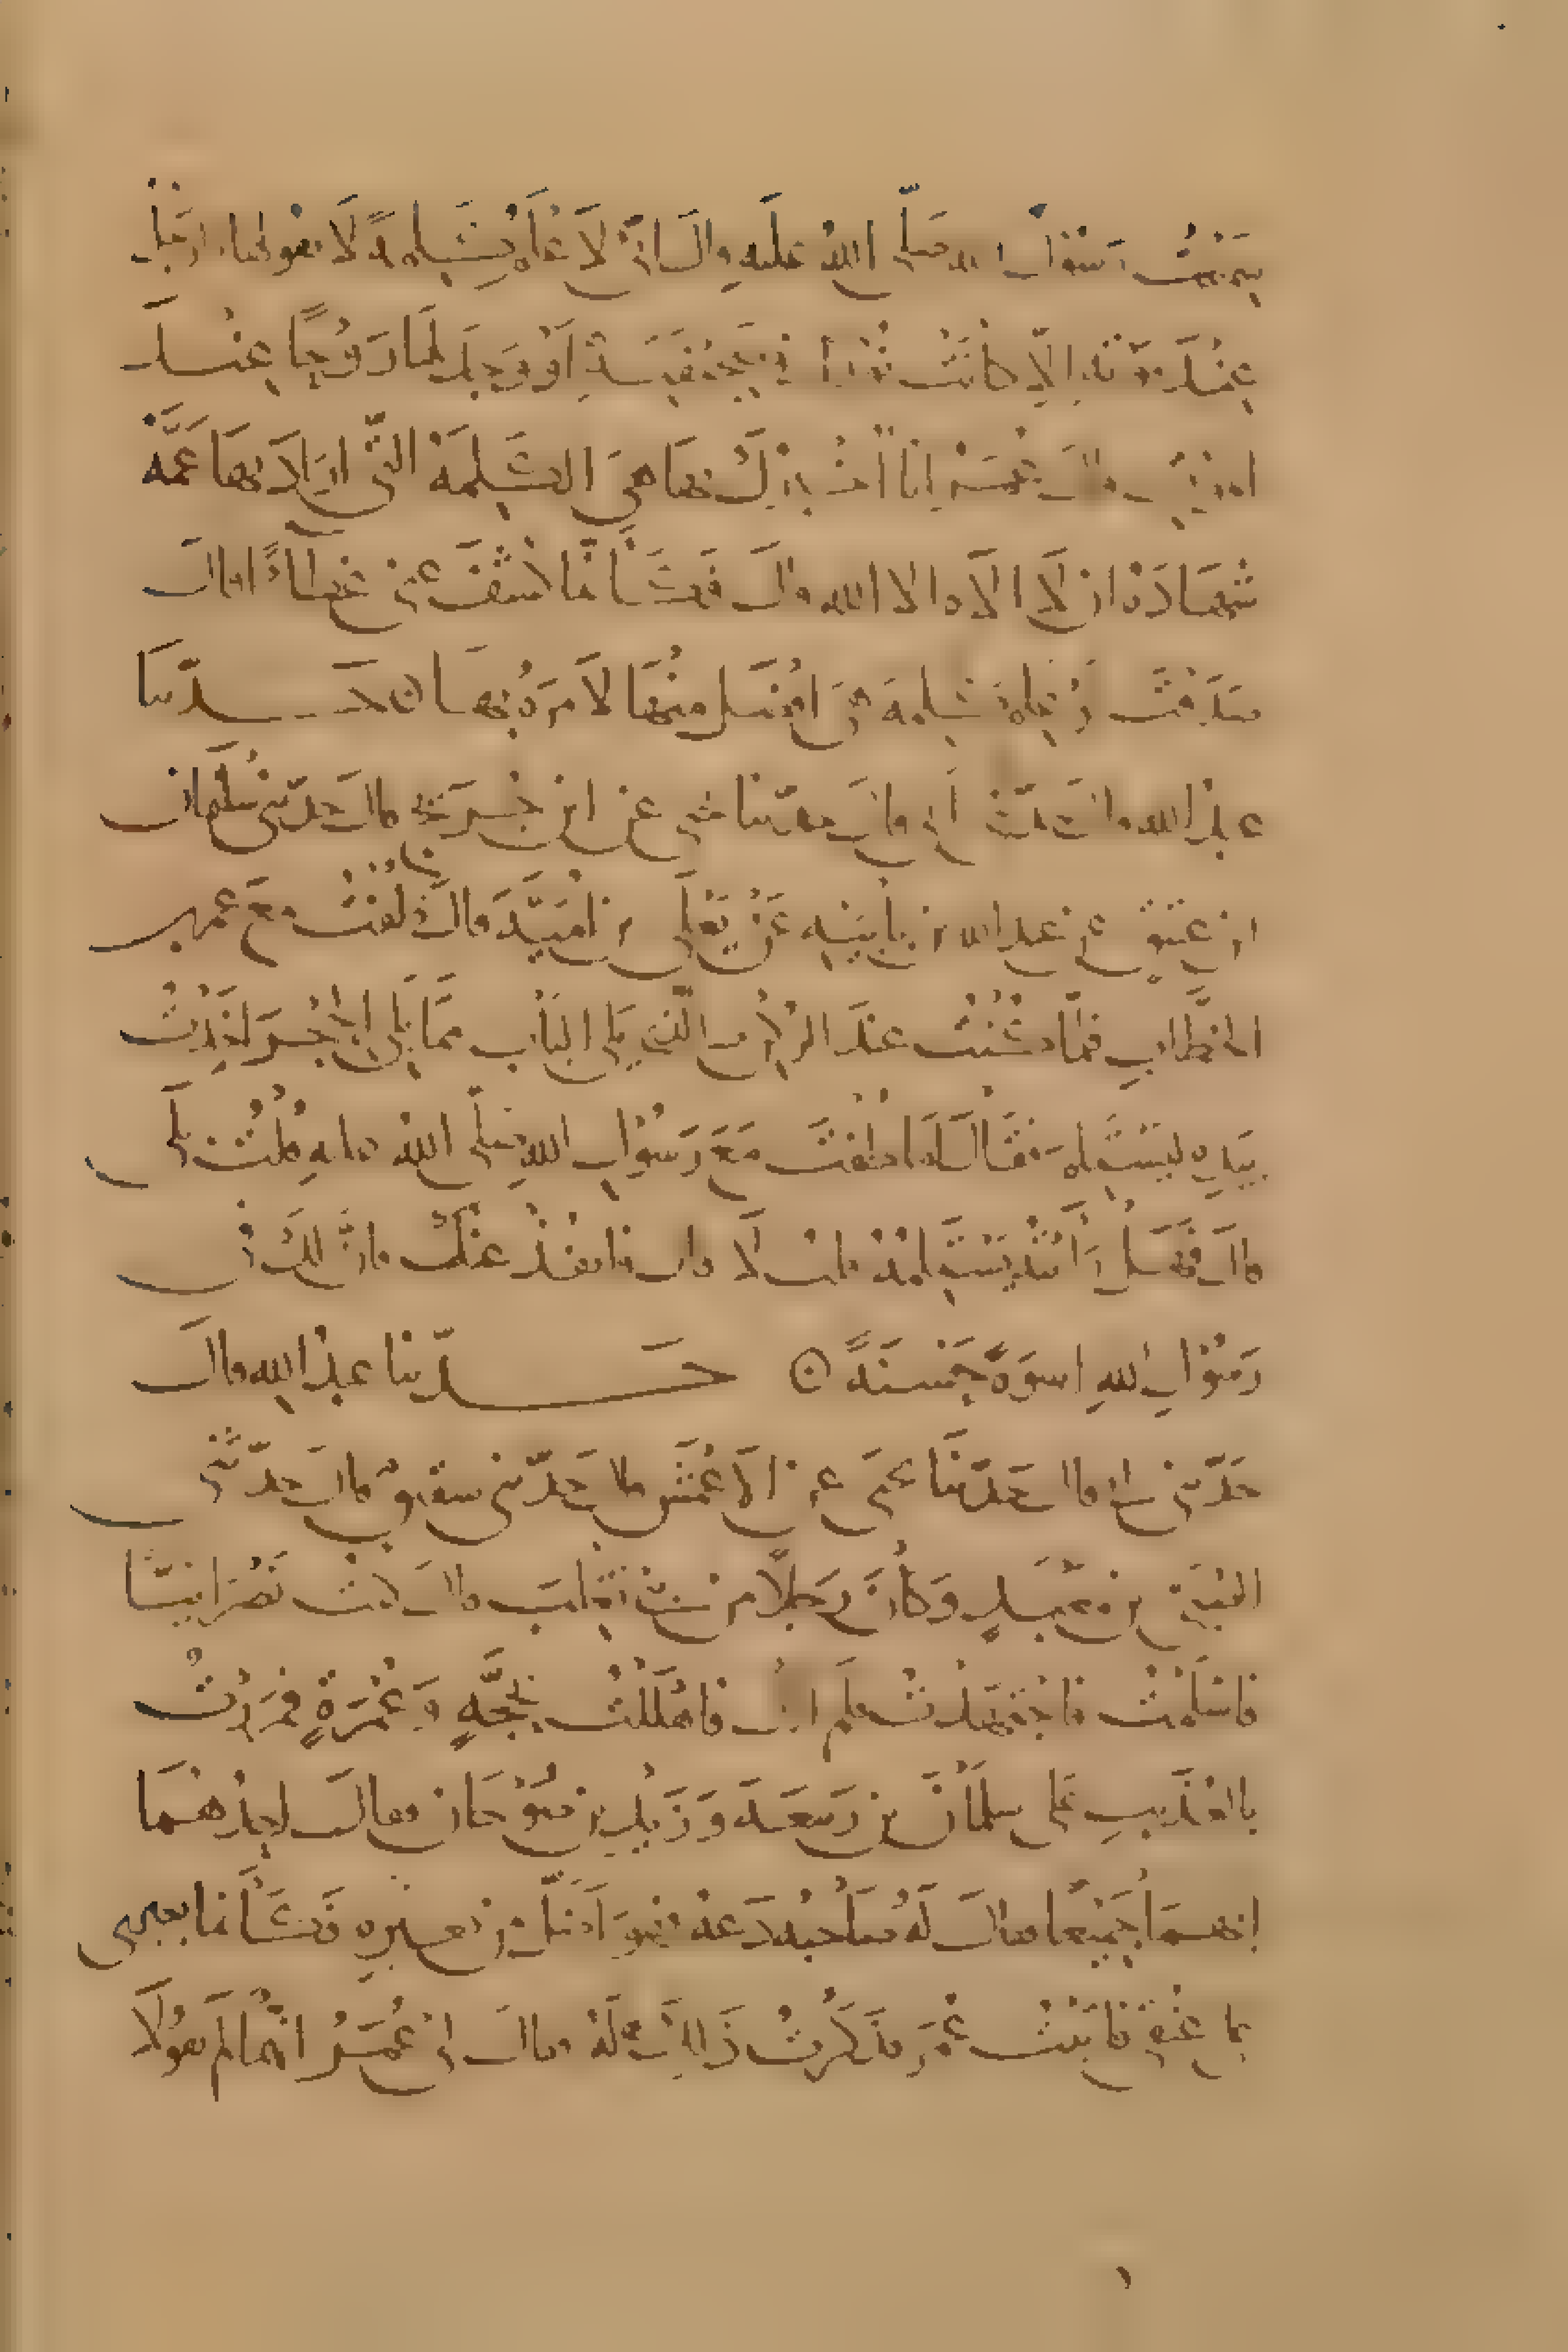 سمعت رسول الله صلى الله عليه وال اني لاعلم كلمة لا يقولها رجل
عند موته الا كانت نورا في صحيفته او وجد لها روحا عند
الموت وال عمر انا اخبرك بها هي الكلمة التي اراد بها عمه
شهادة ان لا الاه الا الله وال فكانما كشف عني غطاء وال
صدقت لو علم كلمة هي افضل منها لامره بها ن حدثنا
عبد الله وال حدثني ابي وال حدثنا يحيى عن ابن جريج وال حدثني سليمن
ابن عتيق عن عبد الله بن بابيه عن يعلى بن امية وال طفت مع عمر بن
الخطاب فلما كنت عند الركن الذي يلي الباب مما يلي الحجر اخذت
بيده ليستلم فقال اما طفت مع رسول الله صلى الله عليه قلت بلى
وال فهل رايته يستلمه قلت لا وال فانفذ عنك فان لك في
رسول الله اسوة حسنة ن حدثنا عبد الله وال
حدثني ابي وال حدثنا يحيى عن الاعمش وال حدثني شقيق وال حدثني
الصبي بن معبد وكان رجلا من بني تغلب وال كنت نصرانيا
فاسلمت فاجتهدت فلم ال فاهللت بحجة وعمرة فمررت
بالعذيب على سلمان بن ربيعة وزيد بن صوحان فقال احدهما
ابهما جميعا فقال له صاحبه دعه فهو اضل من بعيره فكانما بعيري
على عنقي فاتيت عمر فذكرت ذلك له فقال لي عمر انهما لم يقولا